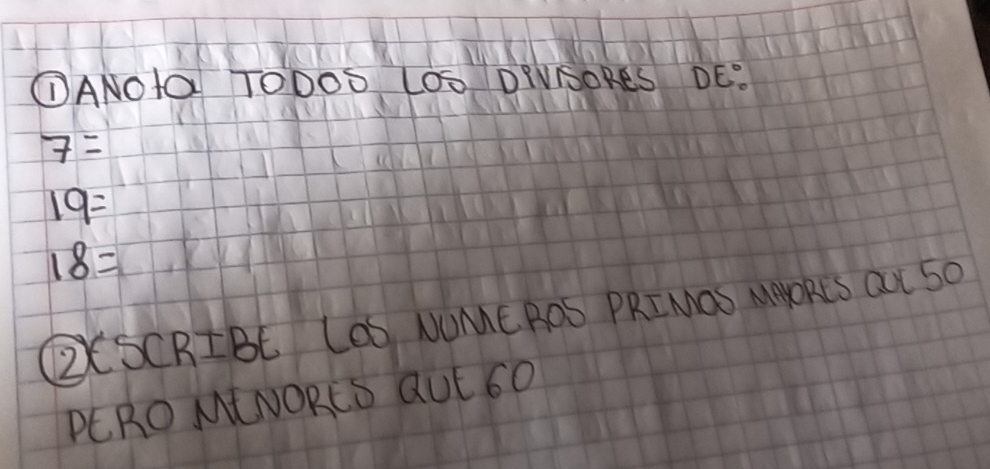 ① ANOTA TODOS LOS DIVISORES DE:
7=
19=
18=
② ESCRIBE LOS NUMEROS PRIMOS MAYORES QUE 50
PERO MENORES QUE 60